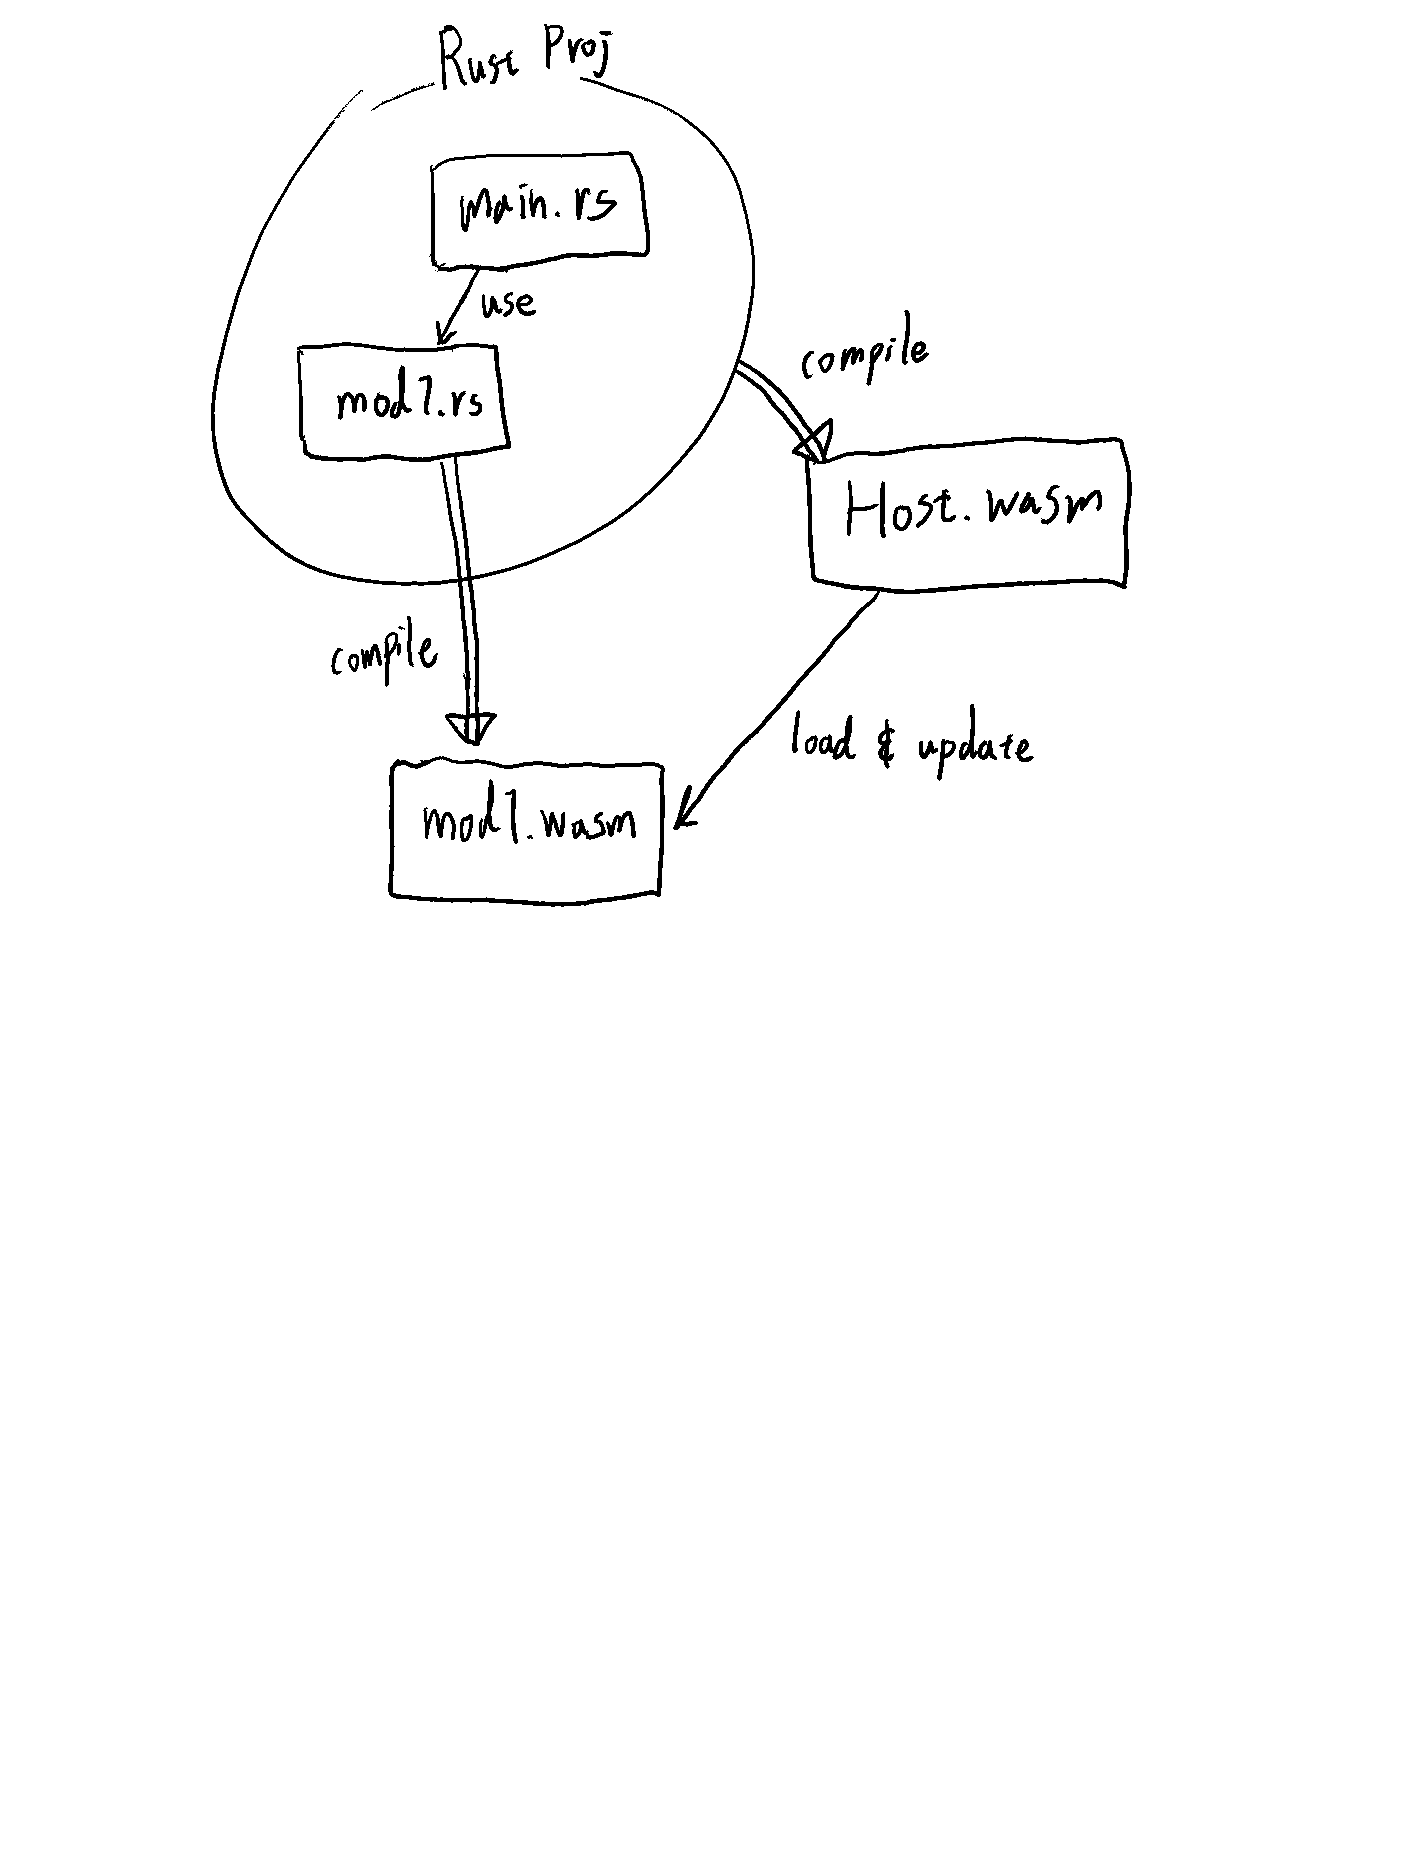 Rust Proj
main.rs
use
mod1.rs
compile
Host.wasm
compile
load & update
mod1.wasm